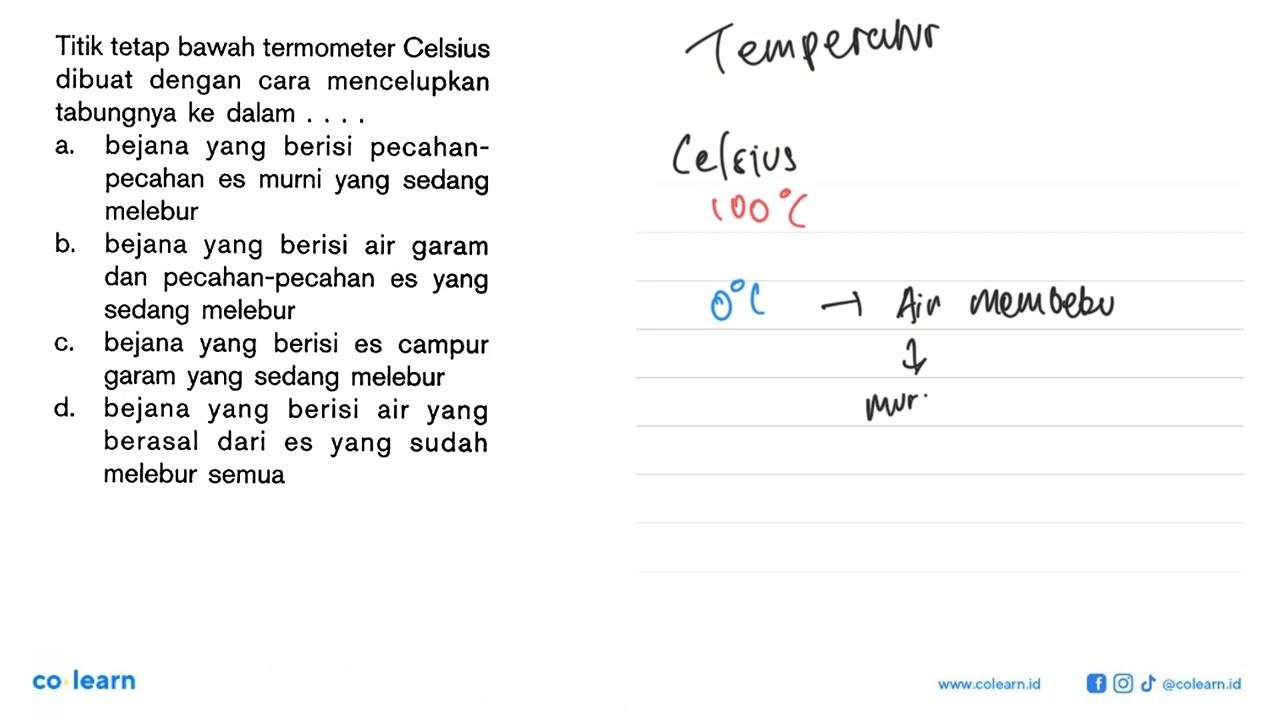 Titik tetap bawah termometer Celsius
dibuat dengan cara mencelupkan
tabungnya ke dalam . . . .
a. bejana yang berisi pecahan-
pecahan es murni yang sedang
melebur
b. bejana yang berisi air garam
dan pecahan-pecahan es yang
sedang melebur
c. bejana yang berisi es campur
garam yang sedang melebur
d. bejana yang berisi air yang
berasal dari es yang sudah
melebur semua
Temperatur
Celsius
100°C
0°C → Air membeku
↓
mur.
co learn
www.colearn.id @colearn.id